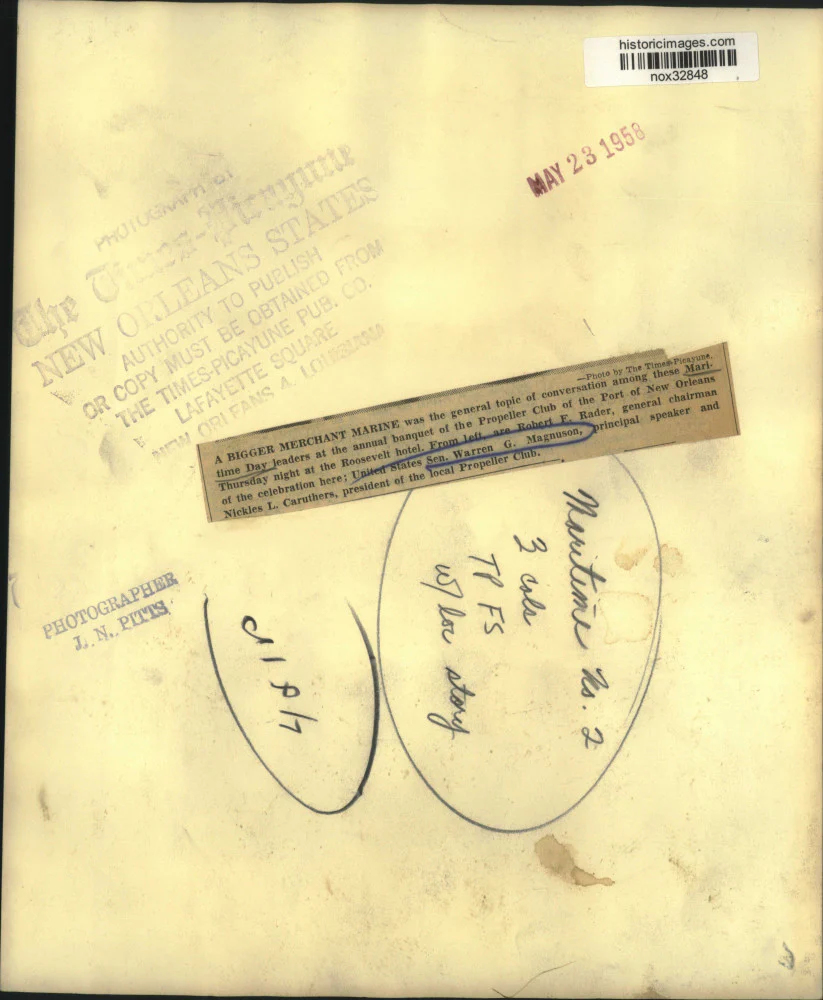 historicimages.com
nox32848
MAY 23 1958
PHOTOGRAPH BY
The Times-Picayune
NEW ORLEANS STATES
AUTHORITY TO PUBLISH
OR COPY MUST BE OBTAINED FROM
THE TIMES-PICAYUNE PUB. CO.
LAFAYETTE SQUARE
NEW ORLEANS LOUISIANA
—Photo by The Times-Picayune.
A BIGGER MERCHANT MARINE was the general topic of conversation among these Mari-
time Day leaders at the annual banquet of the Propeller Club of the Port of New Orleans
Thursday night at the Roosevelt hotel. From left, are Robert F. Rader, general chairman
of the celebration here; United States Sen. Warren G. Magnuson, principal speaker and
Nickles L. Caruthers, president of the local Propeller Club.
Maritime No. 2
3 cols
TP FS
w/ story
PHOTOGRAPHER
J. N. PITTS